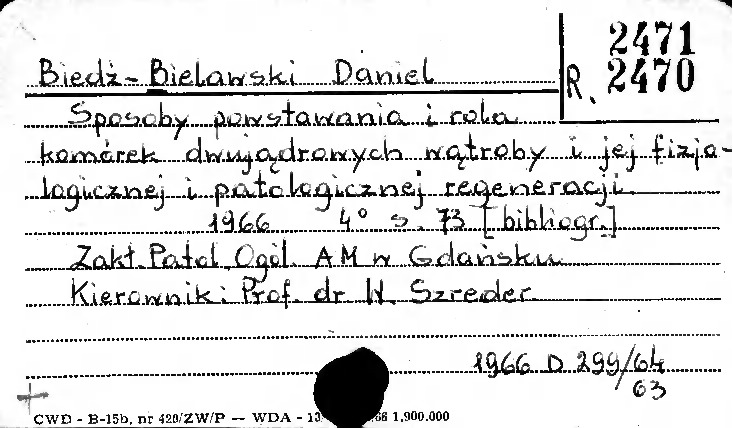 2471
Biedź-Bielawski Daniel R. 2470
Sposoby powstawania i rola
komórek dwujądrowych wątroby i jej fizjo-
logicznej i patologicznej regeneracji.
1966 4° s. 73 [bibliogr.]
Zakł. Patol. Ogól. AM w Gdańsku
Kierownik: Prof. dr W. Szreder
1966 D 299/64
63
CWD - B-15b, nr 420/ZW/P — WDA - 66 1,900.000